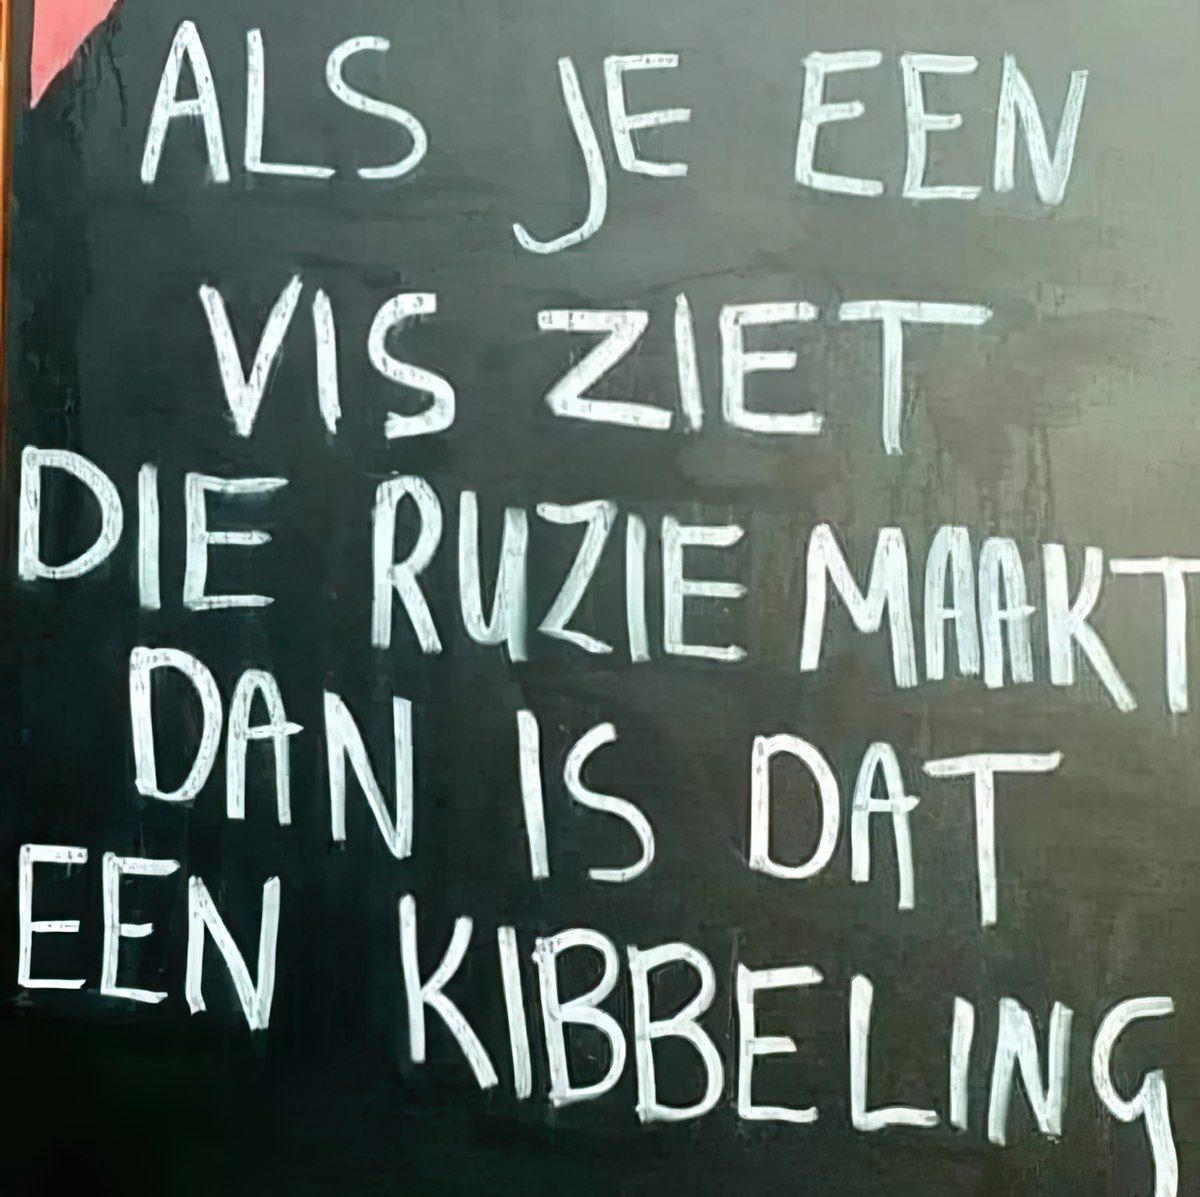 ALS JE EEN
VIS ZIET
DIE RUZIE MAAKT
DAN IS DAT
EEN KIBBELING